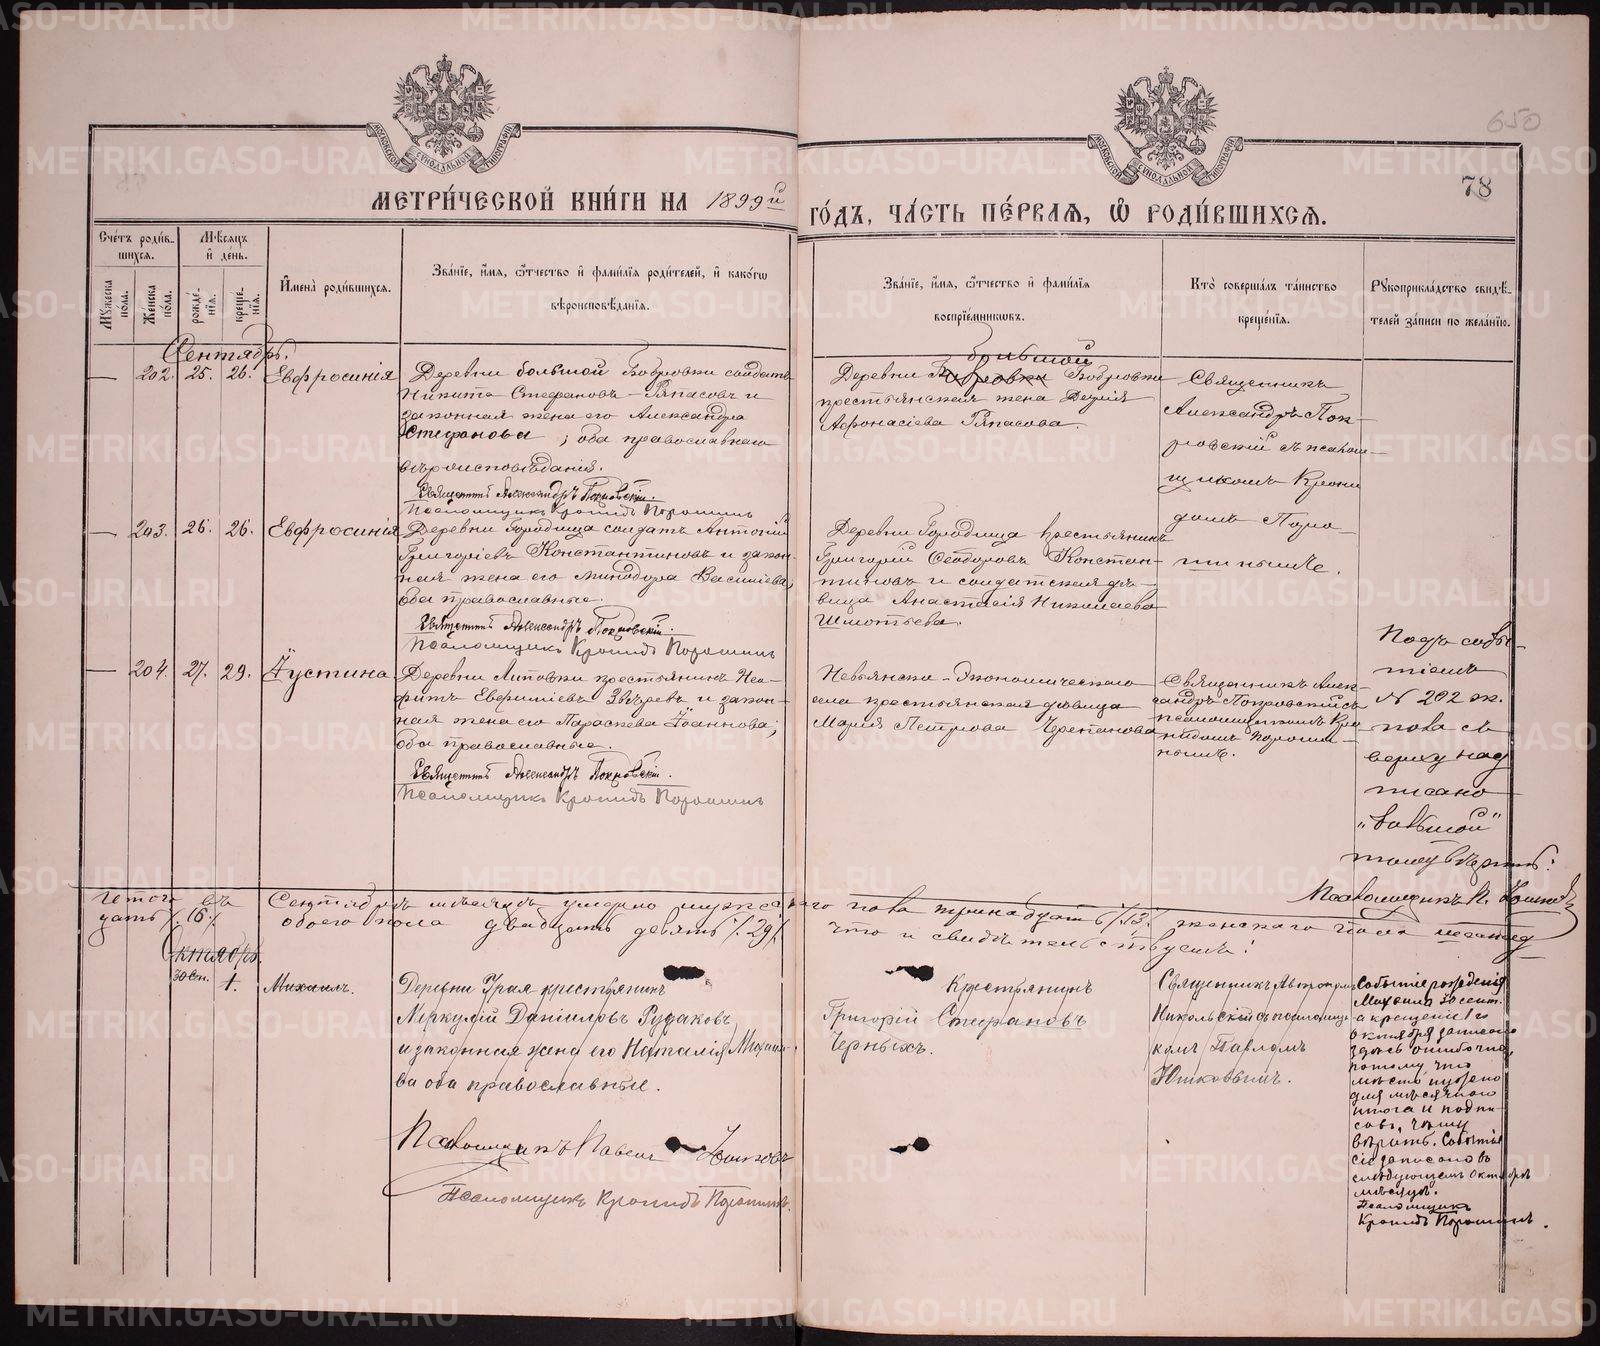 650
78
МОСКОВСКОЙ СѴНОДАЛЬНОЙ ТИПОГРАФІИ
МОСКОВСКОЙ СѴНОДАЛЬНОЙ ТИПОГРАФІИ
МЕТРИ́ЧЕСКОЙ КНИ́ГИ НА 1899й ГО́ДЪ, ЧА́СТЬ ПЕ́РВАЯ, Ѡ РОДИ́ВШИХСЯ.
Сче́тъ роди́в-
шихся.
Мꙋжеска по́ла.
Же́нска по́ла.
Мѣ́сяцъ
и҆ де́нь.
рожде́нїя.
креще́нїя.
И҆мена̀ роди́вшихся.
Зва́нїе, и҆́мя, ѻ҆́тчество и҆ фами́лїя роди́телей, и҆ како́гѡ
вѣроисповѣ́данїя.
Зва́нїе, и҆́мя, ѻ҆́тчество и҆ фами́лїя
воспрїе́мникѡвъ.
Кто̀ соверша́лъ та́инство
креще́нїя.
Рꙋкоприкла́дство свидѣ́-
телей за́писи по жела́нїю.
Сентябрь.
— 202. 25. 26. Евфросинія
Деревни большой Бобровки солдатъ
Никита Стефановъ Ряпасовъ и
законная жена его Александра
Стефанова; оба православнаго
вѣроисповѣданія.
Священникъ Александръ Покровскій.
Псаломщикъ Кронидъ Порошинъ
большой
Деревни Бобровки Бобровки
крестьянская жена
Афонасіева Ряпасова.
Священникъ
Александръ Пок-
ровскій съ псалом-
щикомъ Крони
домъ Поро
шинымъ.
— 203. 26. 26. Евфросинія
Деревни Городища солдатъ Антоній
Григоріевъ Константиновъ и закон-
ная жена его Минодора Василіева,
оба православные.
Священникъ Александръ Покровскій.
Псаломщикъ Кронидъ Порошинъ
Деревни Городища крестьянинъ
Григорій Ѳеодоровъ Констан-
тиновъ и солдатская дѣ-
вица Анастасія Николаева
Шмотьева.
— 204. 27. 29. Іустина
Деревни Липовки крестьянинъ Нео-
фитъ Евфиміевъ Звѣревъ и закон-
ная жена его Параскева Іоаннова;
оба православные.
Священникъ Александръ Покровскій.
Псаломщикъ Кронидъ Порошинъ
Невьянско-Экономическаго
села крестьянская дѣвица
Марія Петрова Черепанова
Священникъ Алек-
сандръ Покровскій съ
псаломщикомъ Кро
нидомъ Пороши-
нымъ.
Подъ собы-
тіемъ
№ 202 ж.
пола съ
верху над
писано
„большой"
тому вѣрить:
Псаломщикъ П. Юшковъ
Итого въ Сентябрѣ мѣсяцѣ умерло мужескаго пола тринадцать /.13/. женскаго пола шестнад
цать /.16./ обоего пола двадцать девять /.29/. что и свидѣтельствуемъ:
Октябрь.
30 Сен. 1. Михаилъ.
Деревни Грая крестьянинъ
Меркурій Даніиловъ Рудаковъ
и законная жена его Наталія Михаило-
ва оба православные.
Псаломщикъ Павелъ Юшковъ
Псаломщикъ Кронидъ Порошинъ.
Крестьянинъ
Григорій Стефановъ
Черныхъ.
Священникъ
Никольскій съ псаломщи
комъ Павломъ
Юшковымъ.
Событіе рожденія
Михаила 30 сент.
а крещенія 1го
октября записано
здѣсь ошибочно,
потому что
мѣсто нужно
для мѣсячнаго
итога и подпи-
совъ, чему
вѣрить. Событіе
сіе записано въ
слѣдующемъ Октябрѣ
мѣсяцѣ.
Псаломщикъ
Кронидъ Порошинъ.
METRIKI.GASO-URAL.RU